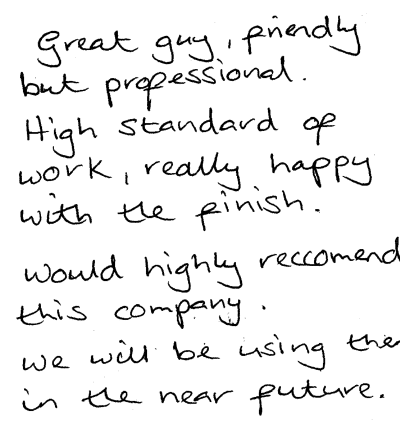 Great guy, friendly
but professional.
High standard of
work, really happy
with the finish.
would highly reccomend
this company.
we will be using the
in the near future.